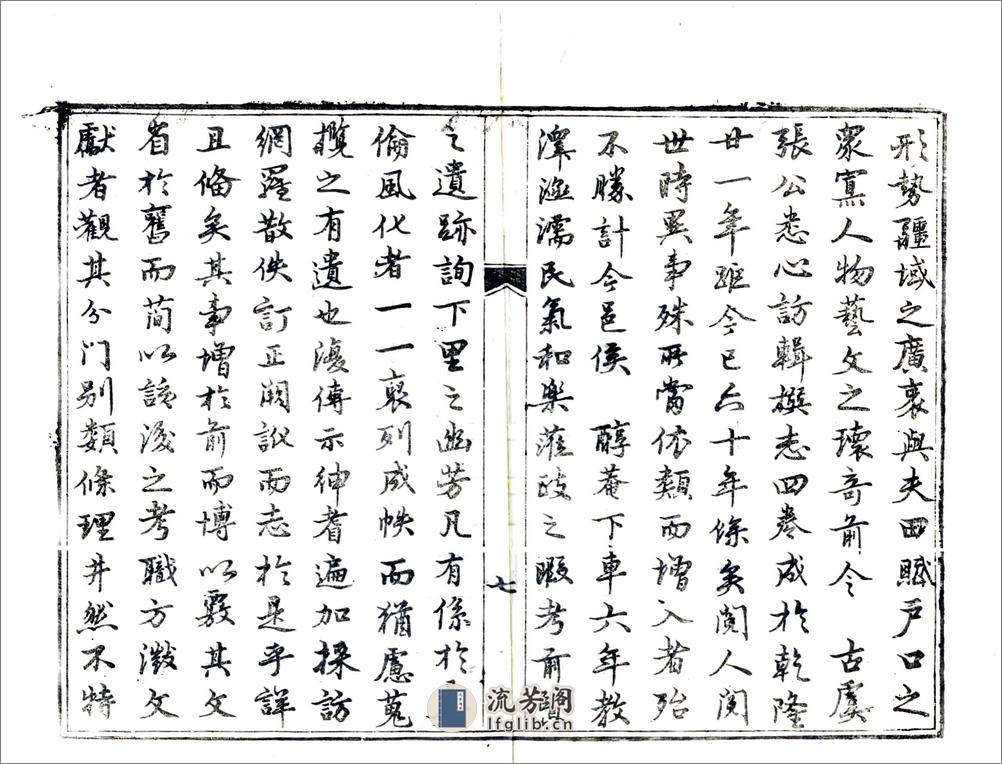 形勢疆域之廣袤與夫田賦戶口之
眾寡人物藝文之瓌奇前令 古虞
張公悉心訪輯撰志四卷成於乾隆
廿一年距今已六十年條矣閱人閱
世時異事殊所當依類而增入者殆
不勝計今邑侯 醇菴下車六年教
澤滋濡民氣和樂蒞政之暇考前
之遺跡詢下里之幽芳凡有係於
倫風化者一一裒列成帙而猶慮蒐
攬之有遺也復傳示紳耆遍加採訪
網羅散佚訂正闕訛而志於是乎詳
且備矣其事增於前而博以覈其文
省於舊而簡以該後之考職方徵文
獻者觀其分門別類條理井然不特
七
流芳阁
lfglib.cn